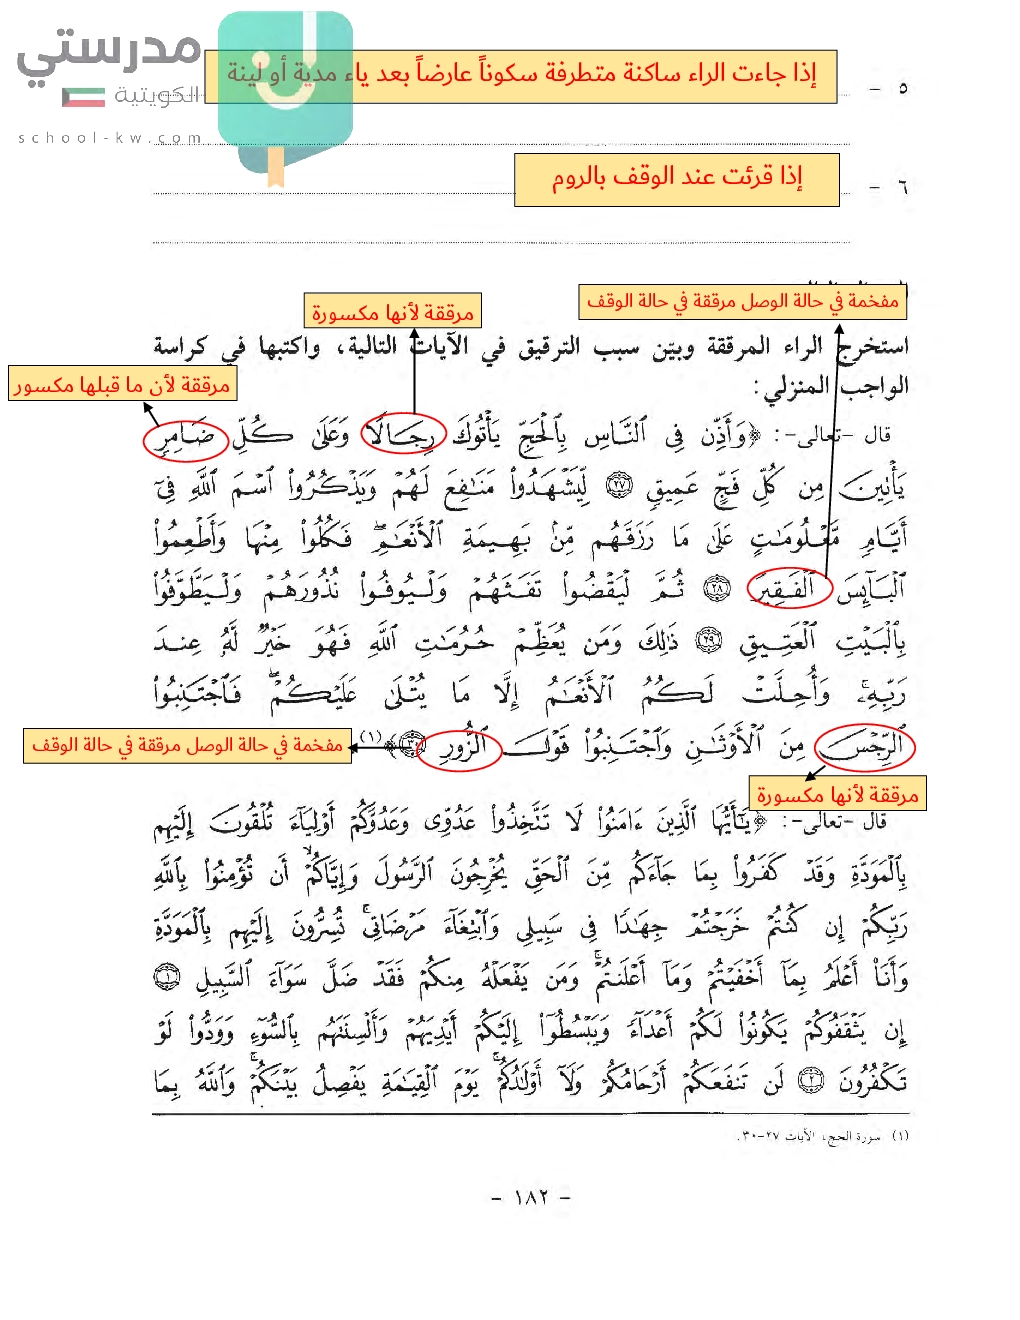 مدرستي
الكويتية
school-kw.com
٥ - إذا جاءت الراء ساكنة متطرفة سكوناً عارضاً بعد ياء مدية أو لينة
٦ - إذا قرئت عند الوقف بالروم
مفخمة في حالة الوصل مرققة في حالة الوقف
مرققة لأنها مكسورة
استخرج الراء المرققة وبيّن سبب الترقيق في الآيات التالية، واكتبها في كراسة
مرققة لأن ما قبلها مكسور
الواجب المنزلي:
قال -تعالى-: ﴿وَأَذِّن فِي النَّاسِ بِالْحَجِّ يَأْتُوكَ رِجَالًا وَعَلَىٰ كُلِّ ضَامِرٍ
يَأْتِينَ مِن كُلِّ فَجٍّ عَمِيقٍ ٢٧ لِّيَشْهَدُوا مَنَافِعَ لَهُمْ وَيَذْكُرُوا اسْمَ اللَّهِ فِي
أَيَّامٍ مَّعْلُومَاتٍ عَلَىٰ مَا رَزَقَهُم مِّن بَهِيمَةِ الْأَنْعَامِ فَكُلُوا مِنْهَا وَأَطْعِمُوا
الْبَائِسَ الْفَقِيرَ ٢٨ ثُمَّ لْيَقْضُوا تَفَثَهُمْ وَلْيُوفُوا نُذُورَهُمْ وَلْيَطَّوَّفُوا
بِالْبَيْتِ الْعَتِيقِ ٢٩ ذَٰلِكَ وَمَن يُعَظِّمْ حُرُمَاتِ اللَّهِ فَهُوَ خَيْرٌ لَّهُ عِندَ
رَبِّهِ وَأُحِلَّتْ لَكُمُ الْأَنْعَامُ إِلَّا مَا يُتْلَىٰ عَلَيْكُمْ فَاجْتَنِبُوا
الرِّجْسَ مِنَ الْأَوْثَانِ وَاجْتَنِبُوا قَوْلَ الزُّورِ ٣٠﴾(١)
مفخمة في حالة الوصل مرققة في حالة الوقف
مرققة لأنها مكسورة
قال -تعالى-: ﴿يَا أَيُّهَا الَّذِينَ آمَنُوا لَا تَتَّخِذُوا عَدُوِّي وَعَدُوَّكُمْ أَوْلِيَاءَ تُلْقُونَ إِلَيْهِم
بِالْمَوَدَّةِ وَقَدْ كَفَرُوا بِمَا جَاءَكُم مِّنَ الْحَقِّ يُخْرِجُونَ الرَّسُولَ وَإِيَّاكُمْ أَن تُؤْمِنُوا بِاللَّهِ
رَبِّكُمْ إِن كُنتُمْ خَرَجْتُمْ جِهَادًا فِي سَبِيلِي وَابْتِغَاءَ مَرْضَاتِي تُسِرُّونَ إِلَيْهِم بِالْمَوَدَّةِ
وَأَنَا أَعْلَمُ بِمَا أَخْفَيْتُمْ وَمَا أَعْلَنتُمْ وَمَن يَفْعَلْهُ مِنكُمْ فَقَدْ ضَلَّ سَوَاءَ السَّبِيلِ ١
إِن يَثْقَفُوكُمْ يَكُونُوا لَكُمْ أَعْدَاءً وَيَبْسُطُوا إِلَيْكُمْ أَيْدِيَهُمْ وَأَلْسِنَتَهُم بِالسُّوءِ وَوَدُّوا لَوْ
تَكْفُرُونَ ٢ لَن تَنفَعَكُمْ أَرْحَامُكُمْ وَلَا أَوْلَادُكُمْ يَوْمَ الْقِيَامَةِ يَفْصِلُ بَيْنَكُمْ وَاللَّهُ بِمَا
(١) سورة الحج، الآيات ٢٧-٣٠.
- ١٨٢ -